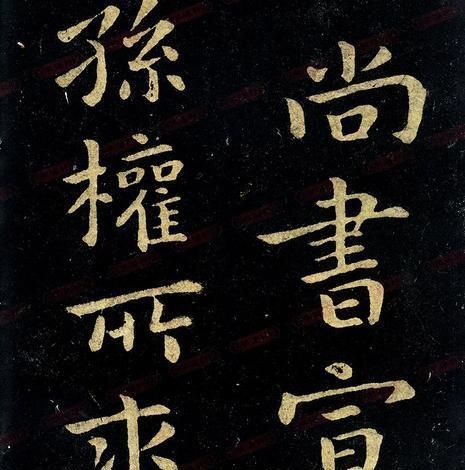 尚書宣
孫權所求